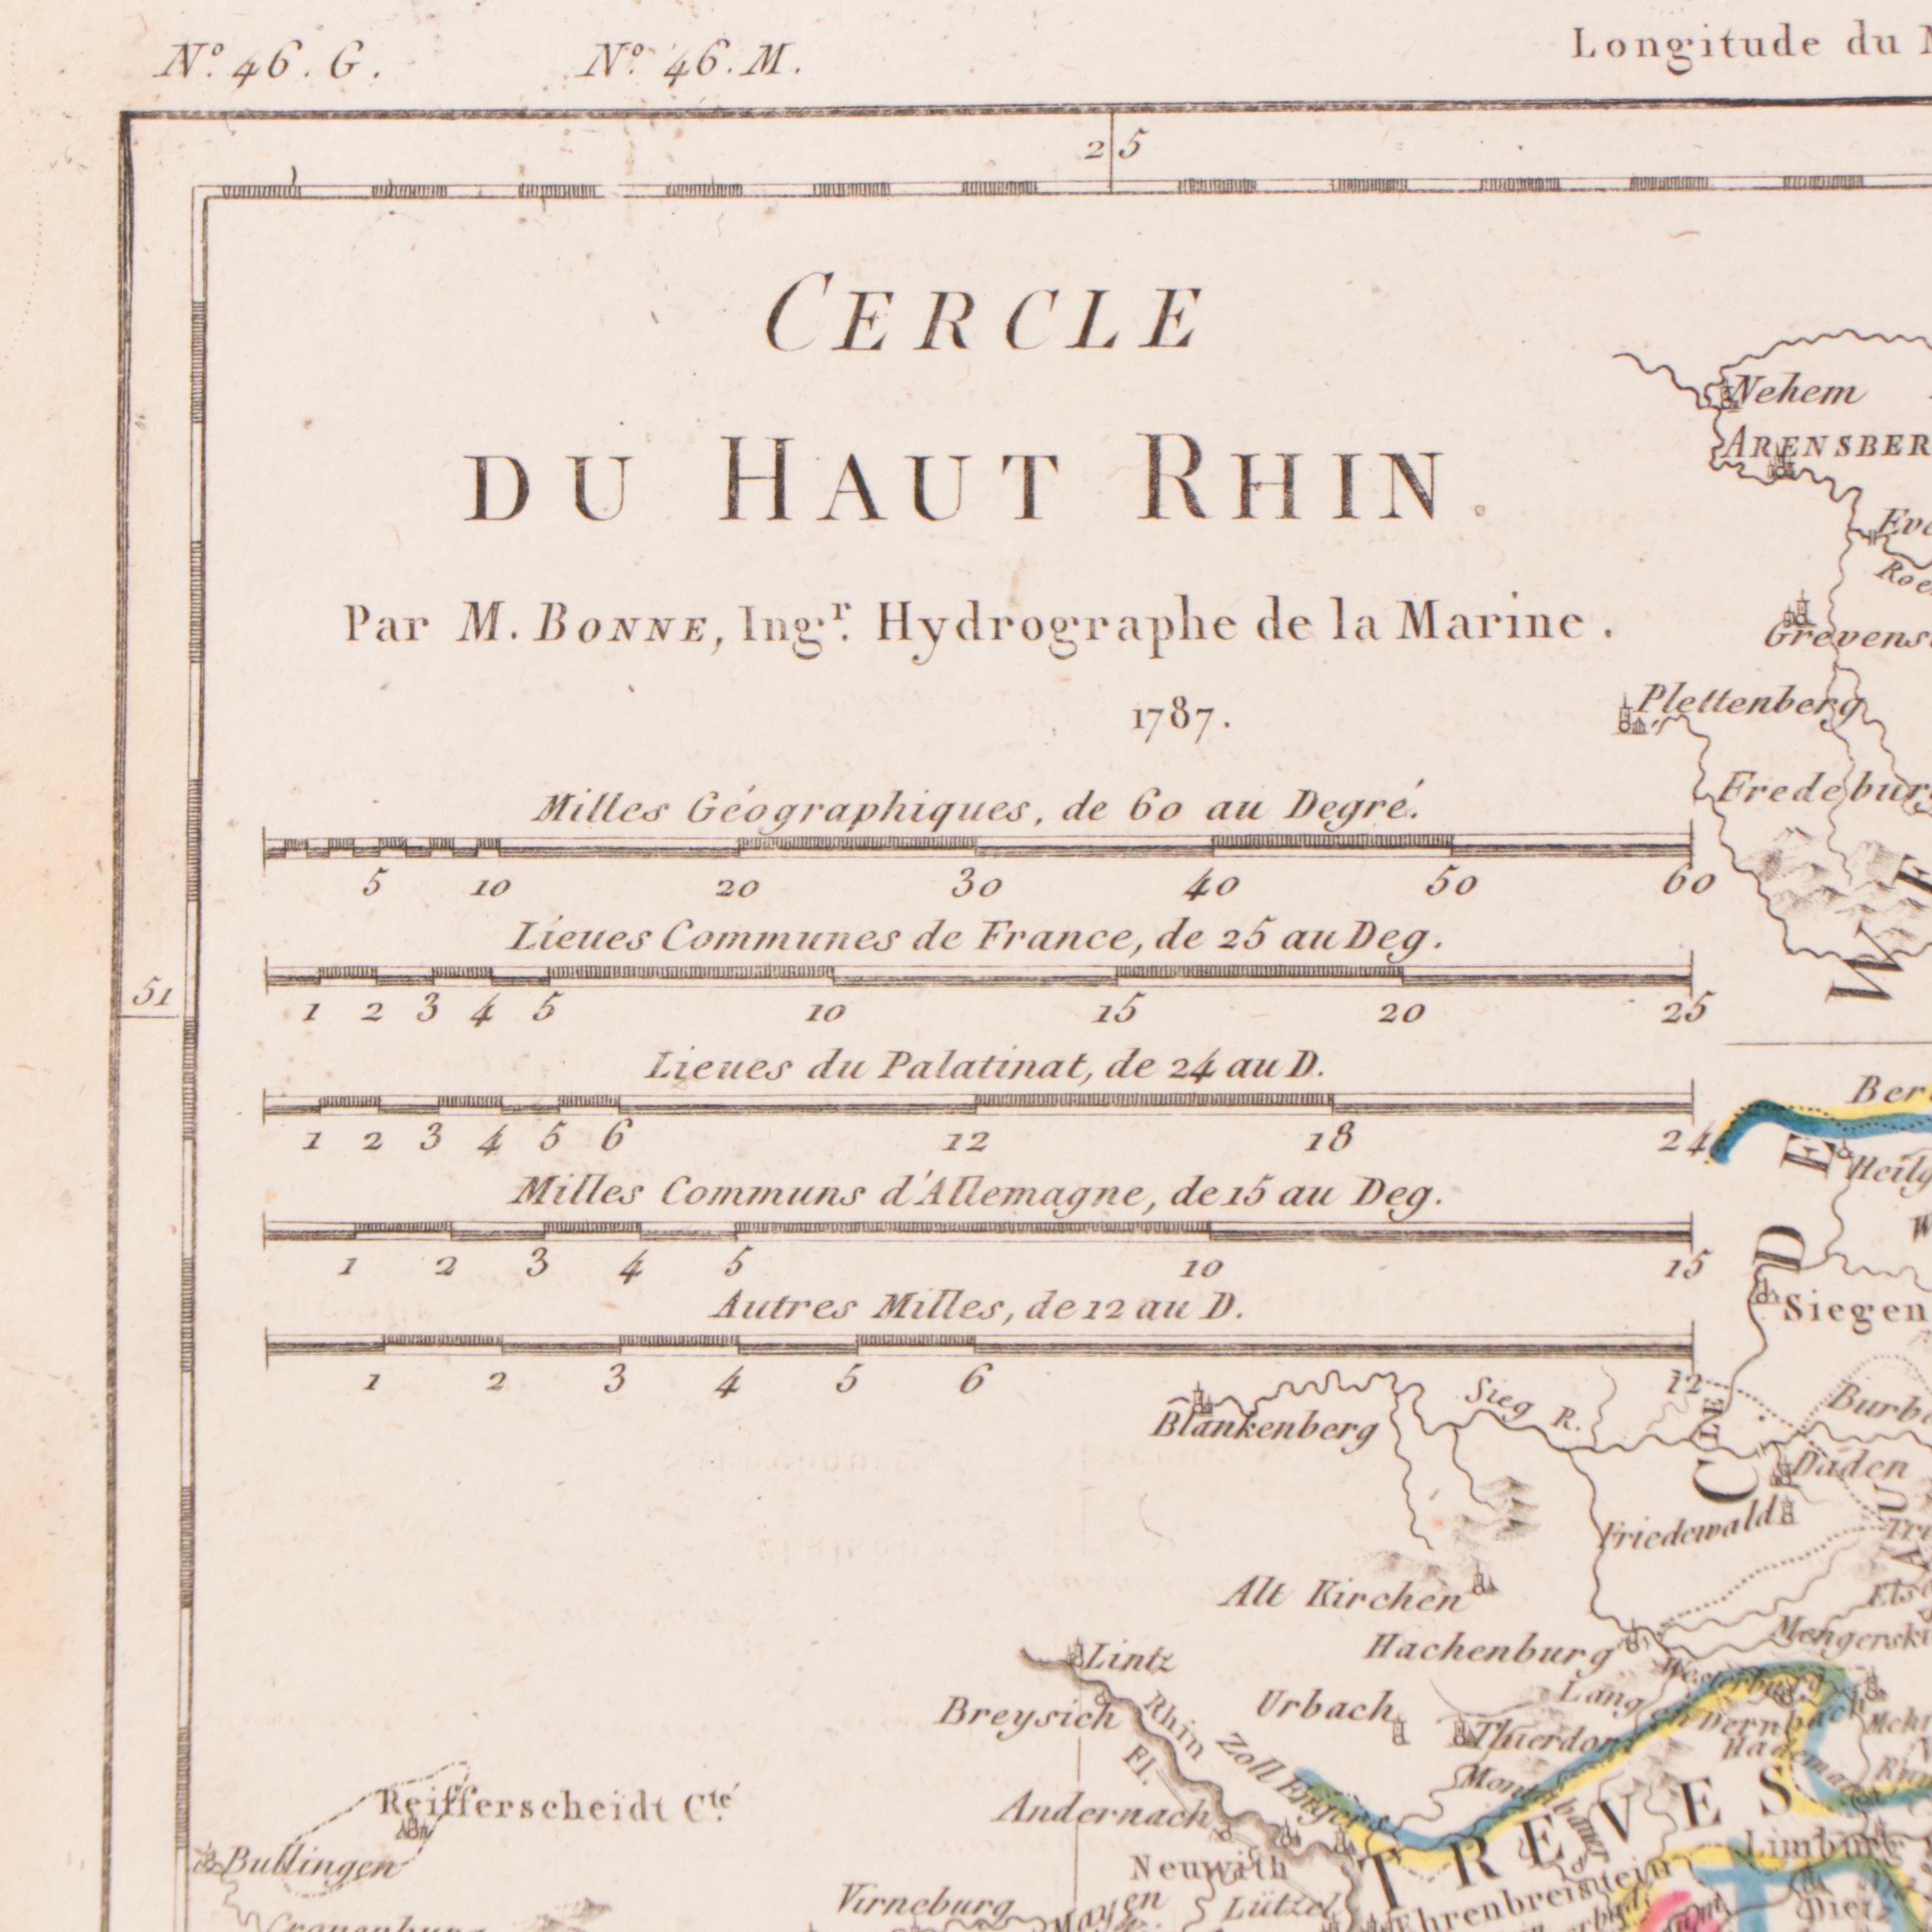 N.º 46. G. N.º 46. M. Longitude du
25
CERCLE
DU HAUT RHIN.
Par M. BONNE, Ing.r Hydrographe de la Marine.
1787.
Milles Géographiques, de 60 au Degré.
5 10 20 30 40 50 60
Lieues Communes de France, de 25 au Deg.
1 2 3 4 5 10 15 20 25
51
Lieues du Palatinat, de 24 au D.
1 2 3 4 5 6 12 18 24
Milles Communs d'Allemagne, de 15 au Deg.
1 2 3 4 5 10 15
Autres Milles, de 12 au D.
1 2 3 4 5 6 12
Nehem
ARENSBER
Eve
Roe
Grevens
Plettenberg
Fredebur
WE
Ber
DE
Heilg
Siegen
Sieg R.
Blankenberg
CLE
Burb
Daden
Friedewald
Alt Kirchen
Els
Hachenburg
Mengersk
Lintz
Westerburg
Breysich
Rhin Fl.
Urbach
Langen Dernbach
Thierdorf
Zoll Engers
Montabauer
Andernach
TREVES
Reifferscheidt C.té
Bullingen
Neuwith
Limburg
Ehrenbreistein
Virneburg
Mayen
Lützel
Diez
Cronenburg